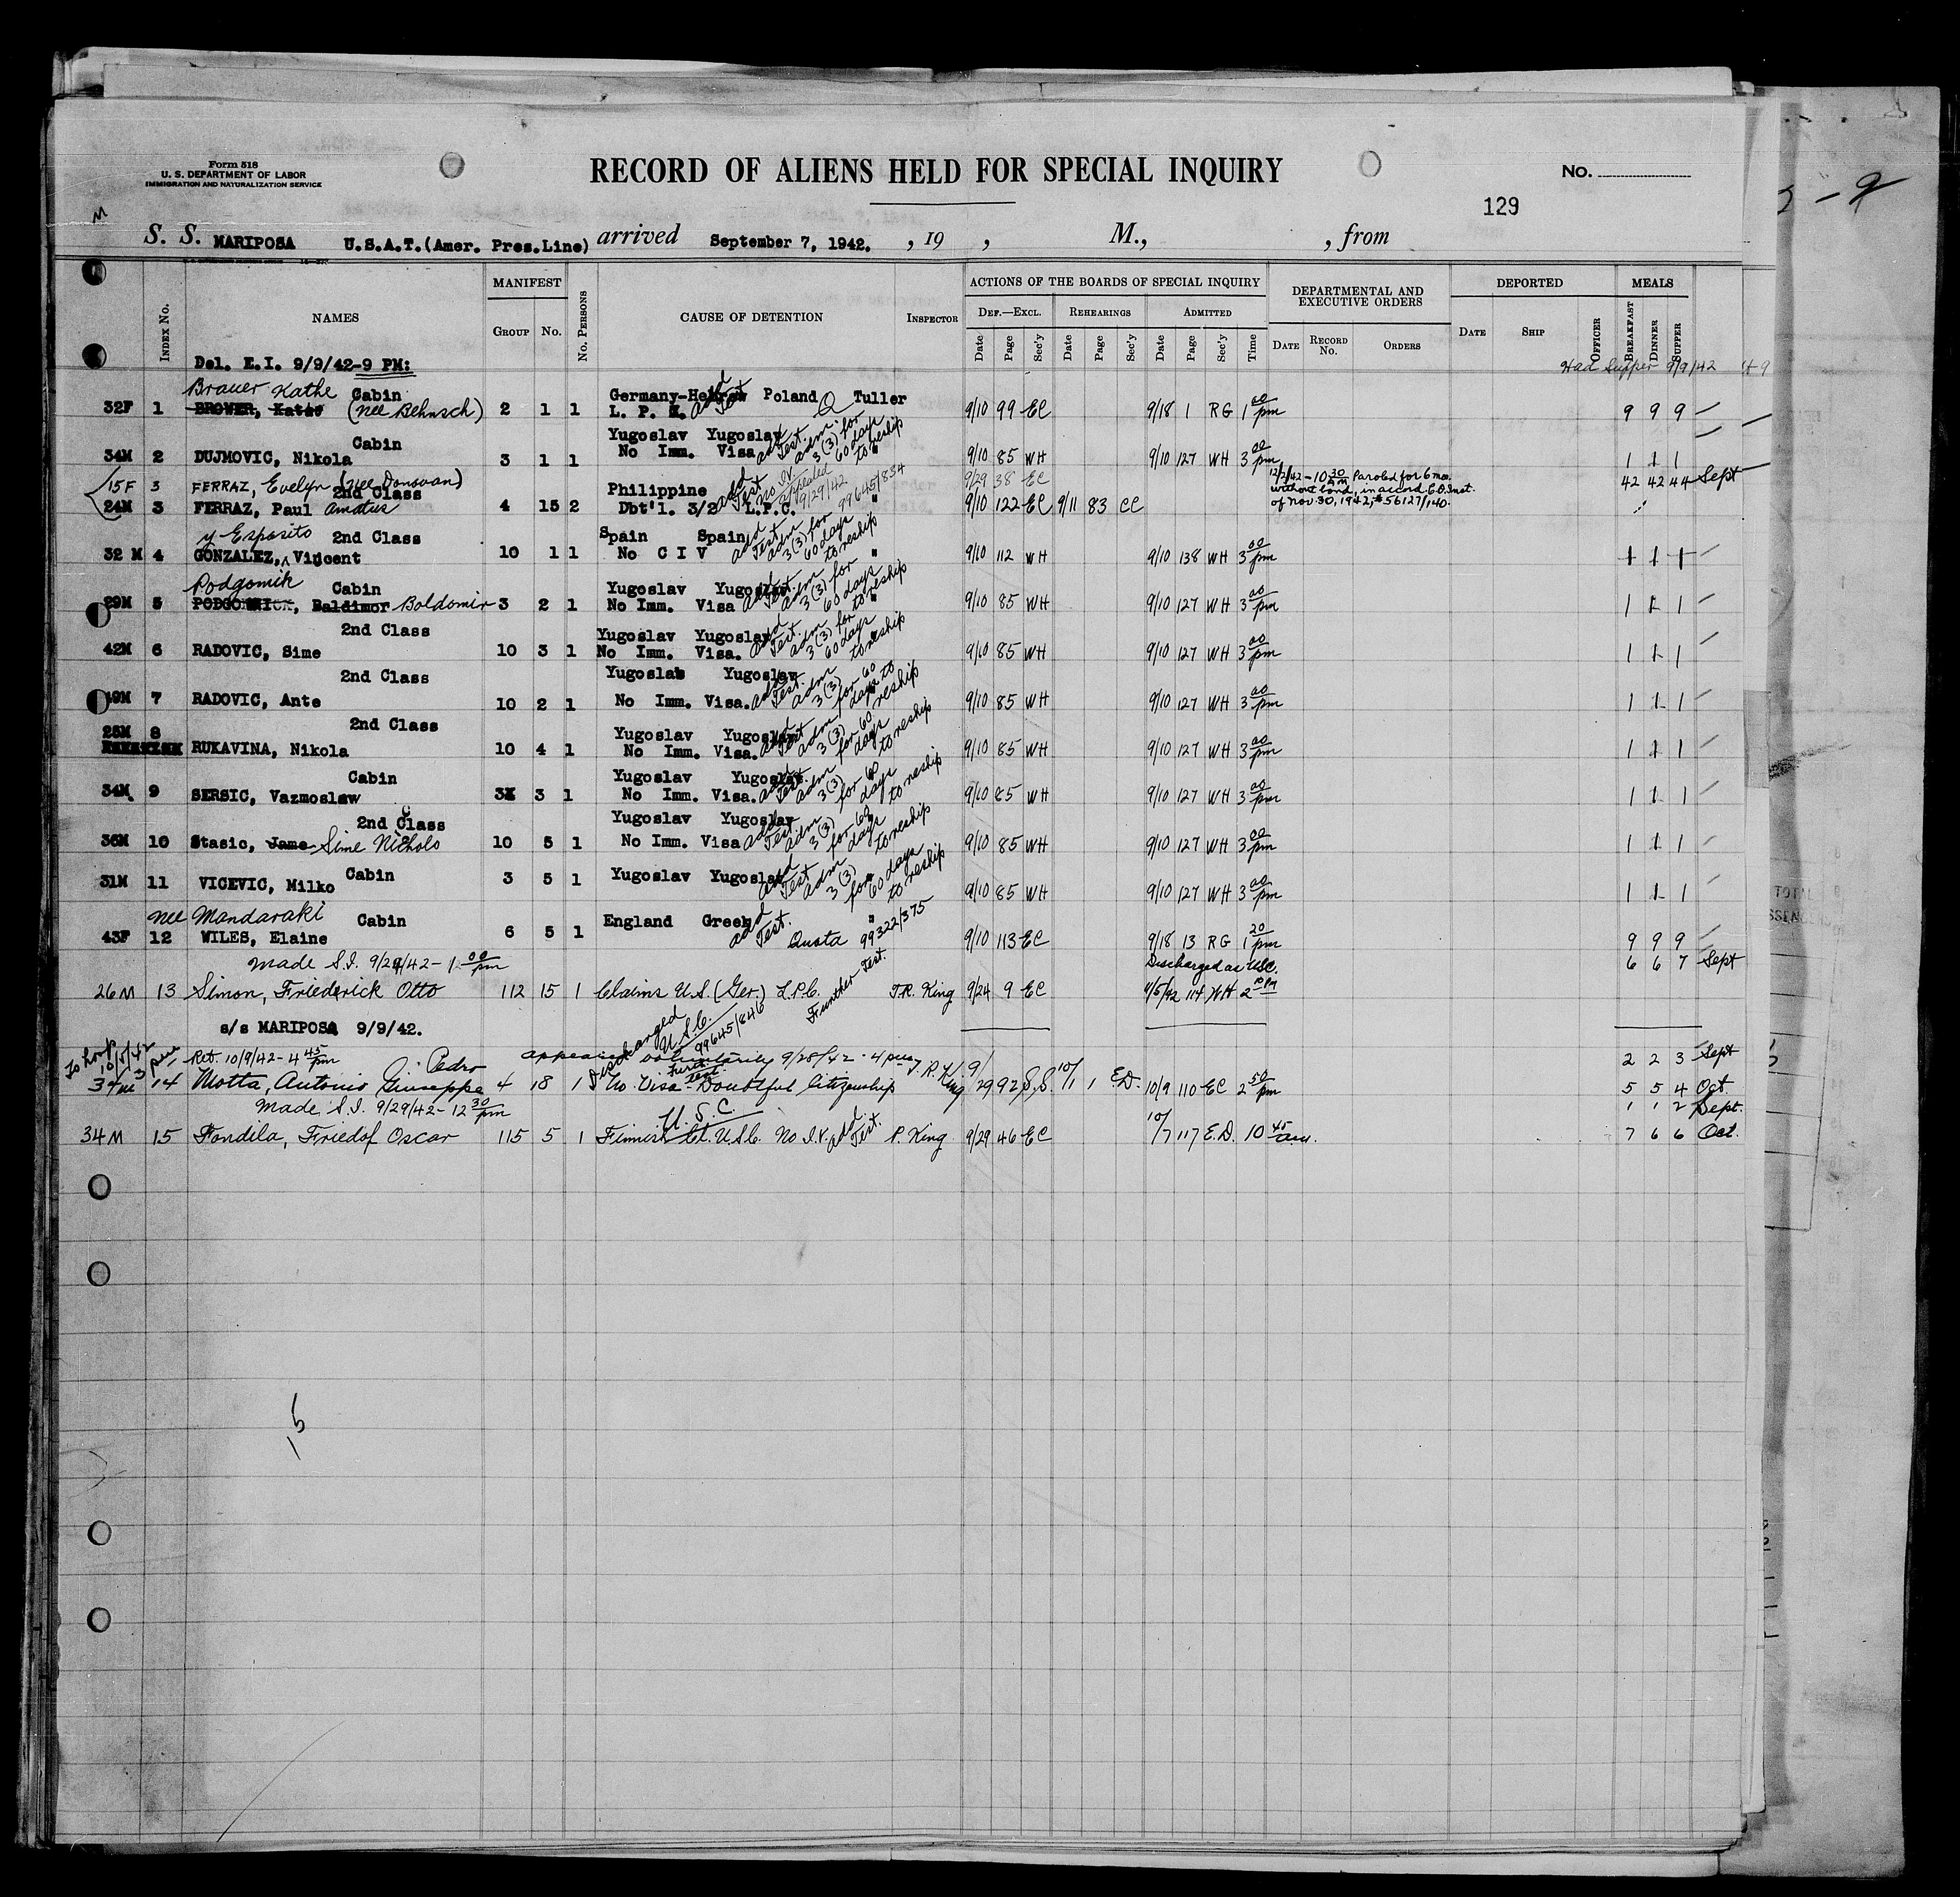 Form 518
U. S. DEPARTMENT OF LABOR
IMMIGRATION AND NATURALIZATION SERVICE
RECORD OF ALIENS HELD FOR SPECIAL INQUIRY
No.
129
S. S. MARIPOSA U.S.A.T.(Amer. Pres.Line) arrived September 7, 1942. , 19 , M., , from
INDEX No. NAMES MANIFEST GROUP No. No. PERSONS CAUSE OF DETENTION INSPECTOR ACTIONS OF THE BOARDS OF SPECIAL INQUIRY DEF.—EXCL. Date Page Sec'y REHEARINGS Date Page Sec'y ADMITTED Date Page Sec'y Time DEPARTMENTAL AND EXECUTIVE ORDERS DATE RECORD No. ORDERS DEPORTED DATE SHIP OFFICER MEALS BREAKFAST DINNER SUPPER
Del. E.I. 9/9/42-9 PM:
Had Supper 9/9/42
Brauer Kathe Cabin Germany-Hebrew Poland Tuller
32F 1 BROWER, Kathe (nee Behnsch) 2 1 1 L. P. C. add Test 9/10 99 EC 9/18 1 RG 1 00 pm 9 9 9
Cabin Yugoslav Yugoslav
34M 2 DUJMOVIC, Nikola 3 1 1 No Imm. Visa add Test. adm. 3(3) for 60 days to reship 9/10 85 WH 9/10 127 WH 3 00 pm 1 1 1
15F 3 FERRAZ, Evelyn (nee Donovan) 9/29 38 EC 42 42 44 Sept
2nd Class Philippine add Test No IV appealed 9/29/42 99645/834
24M 3 FERRAZ, Paul Amatus 4 15 2 Dbt'l. 3/2 L.P.C. " 9/10 122 EC 9/11 83 CC
12/2/42-10 30 AM Paroled for 6 mos.
without bond, in accord C.O. Inst.
of Nov 30, 1942, #56127/140.
y Esposito 2nd Class Spain Spain
32 M 4 GONZALEZ, Vincent 10 1 1 No C I V add Test adm 3(3) for 60 days to reship " 9/10 112 WH 9/10 138 WH 3 00 pm 1 1 1
Podgornik Cabin Yugoslav Yugoslav
29M 5 PODGORNICK, Baldimor Boldomir 3 2 1 No Imm. Visa add Test. adm 3(3) for 60 days to reship " 9/10 85 WH 9/10 127 WH 3 00 pm 1 1 1
2nd Class Yugoslav Yugoslav
42M 6 RADOVIC, Sime 10 3 1 No Imm. Visa. add Test. adm 3(3) for 60 days to reship 9/10 85 WH 9/10 127 WH 3 00 pm 1 1 1
2nd Class Yugoslav Yugoslav
49M 7 RADOVIC, Ante 10 2 1 No Imm. Visa. add Test. adm 3(3) for 60 days to reship 9/10 85 WH 9/10 127 WH 3 00 pm 1 1 1
25M 8 2nd Class Yugoslav Yugoslav
RUKAVINA, Nikola 10 4 1 No Imm. Visa. add Test adm 3(3) for 60 days to reship 9/10 85 WH 9/10 127 WH 3 00 pm 1 1 1
Cabin Yugoslav Yugoslav
34M 9 SERSIC, Vazmoslaw 3 3 1 No Imm. Visa. add Test adm 3(3) for 60 days to reship 9/10 85 WH 9/10 127 WH 3 00 pm 1 1 1
2nd Class Yugoslav Yugoslav
36M 10 Stasic, Jame Sime Nicholo 10 5 1 No Imm. Visa add Test. adm 3(3) for 60 days to reship 9/10 85 WH 9/10 127 WH 3 00 pm 1 1 1
31M 11 VICEVIC, Milko Cabin 3 5 1 Yugoslav Yugoslav add Test adm 3(3) for 60 days to reship 9/10 85 WH 9/10 127 WH 3 00 pm 1 1 1
nee Mandaraki Cabin England Greek "
43F 12 WILES, Elaine 6 5 1 add Test. Quota 99322/375 9/10 113 EC 9/18 13 RG 1 20 pm 9 9 9
made S.I. 9/24/42-1 00 pm Discharged as USC. 6 6 7 Sept
26M 13 Simon, Friederick Otto 112 15 1 Claims U.S. (Ger.) L.P.C. Further Test. T.R. King 9/24 9 EC 11/5/42 114 WH 2 PM
s/s MARIPOSA 9/9/42. Discharged U.S.C. 99645/846
To hosp 10/5/42 Ret. 10/9/42-4 45 pm Pedro appeared voluntarily 9/28/42-4 pm 2 2 3 Sept
14 Motta, Antonio Giuseppe 4 18 1 No Visa-Doubtful Citizenship Furth Test. 9/29 92 S.S. 10/1 1 E.D. 10/9 110 EC 2 50 pm 5 5 4 Oct
made S.I. 9/29/42-12 30 pm U.S.C. 1 1 2 Sept.
34M 15 Fondila, Friedof Oscar 115 5 1 Finnish Cl. U.S.C. No I.V. add. Test. P. King 9/29 46 EC 10/7 117 E.D. 10 45 am. 7 6 6 Oct.
15